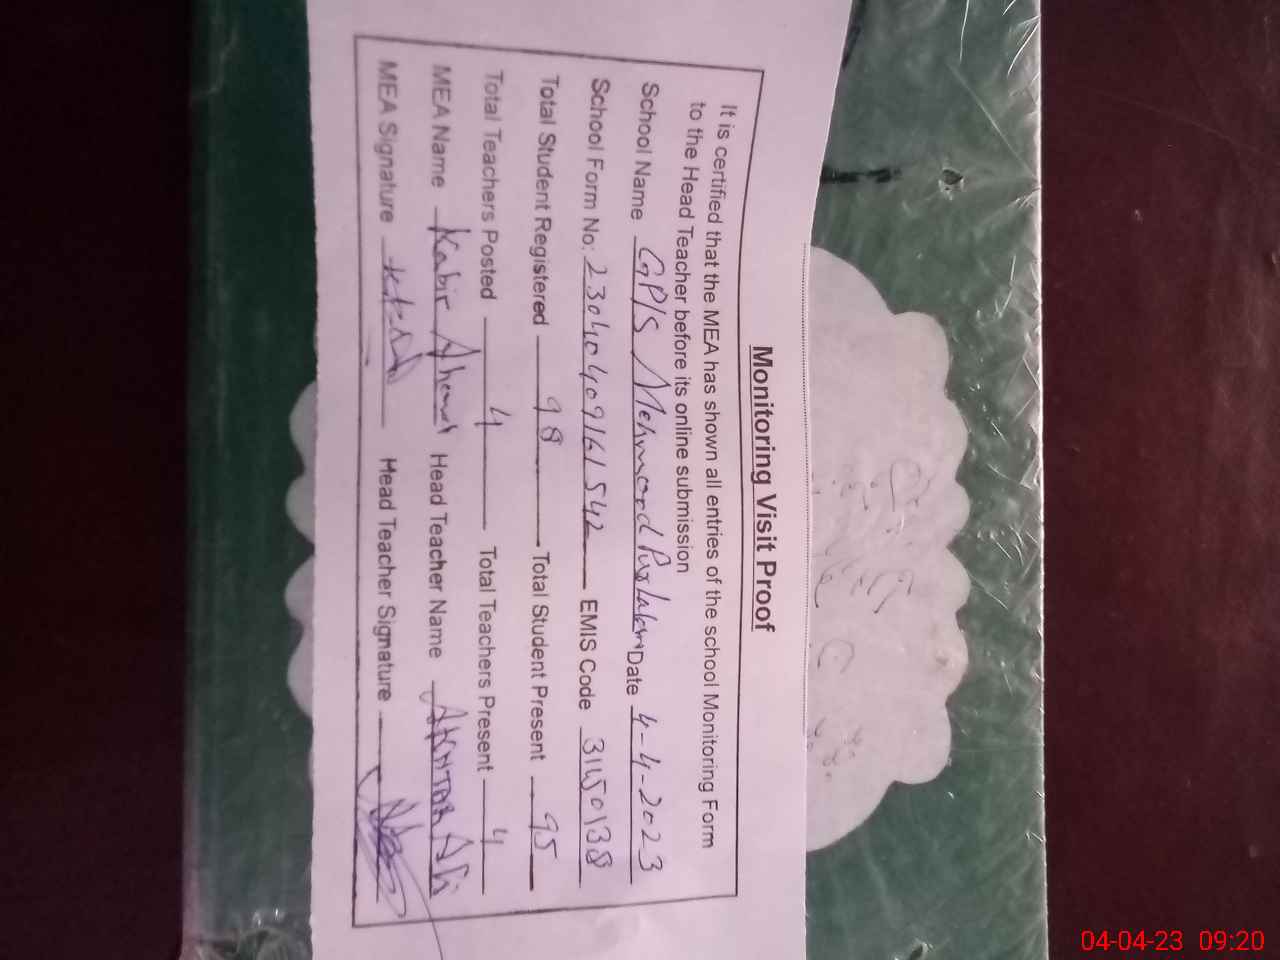 Monitoring Visit Proof
It is certified that the MEA has shown all entries of the school Monitoring Form
to the Head Teacher before its online submission
School Name GP/S Mehmood Pur Date 4-4-2023
School Form No: 23040409161542 EMIS Code 31450138
Total Student Registered 98 Total Student Present 95
Total Teachers Posted 4 Total Teachers Present 4
MEA Name Kabir Ahmad Head Teacher Name AKHTAR Ali
MEA Signature Head Teacher Signature
04-04-23 09:20